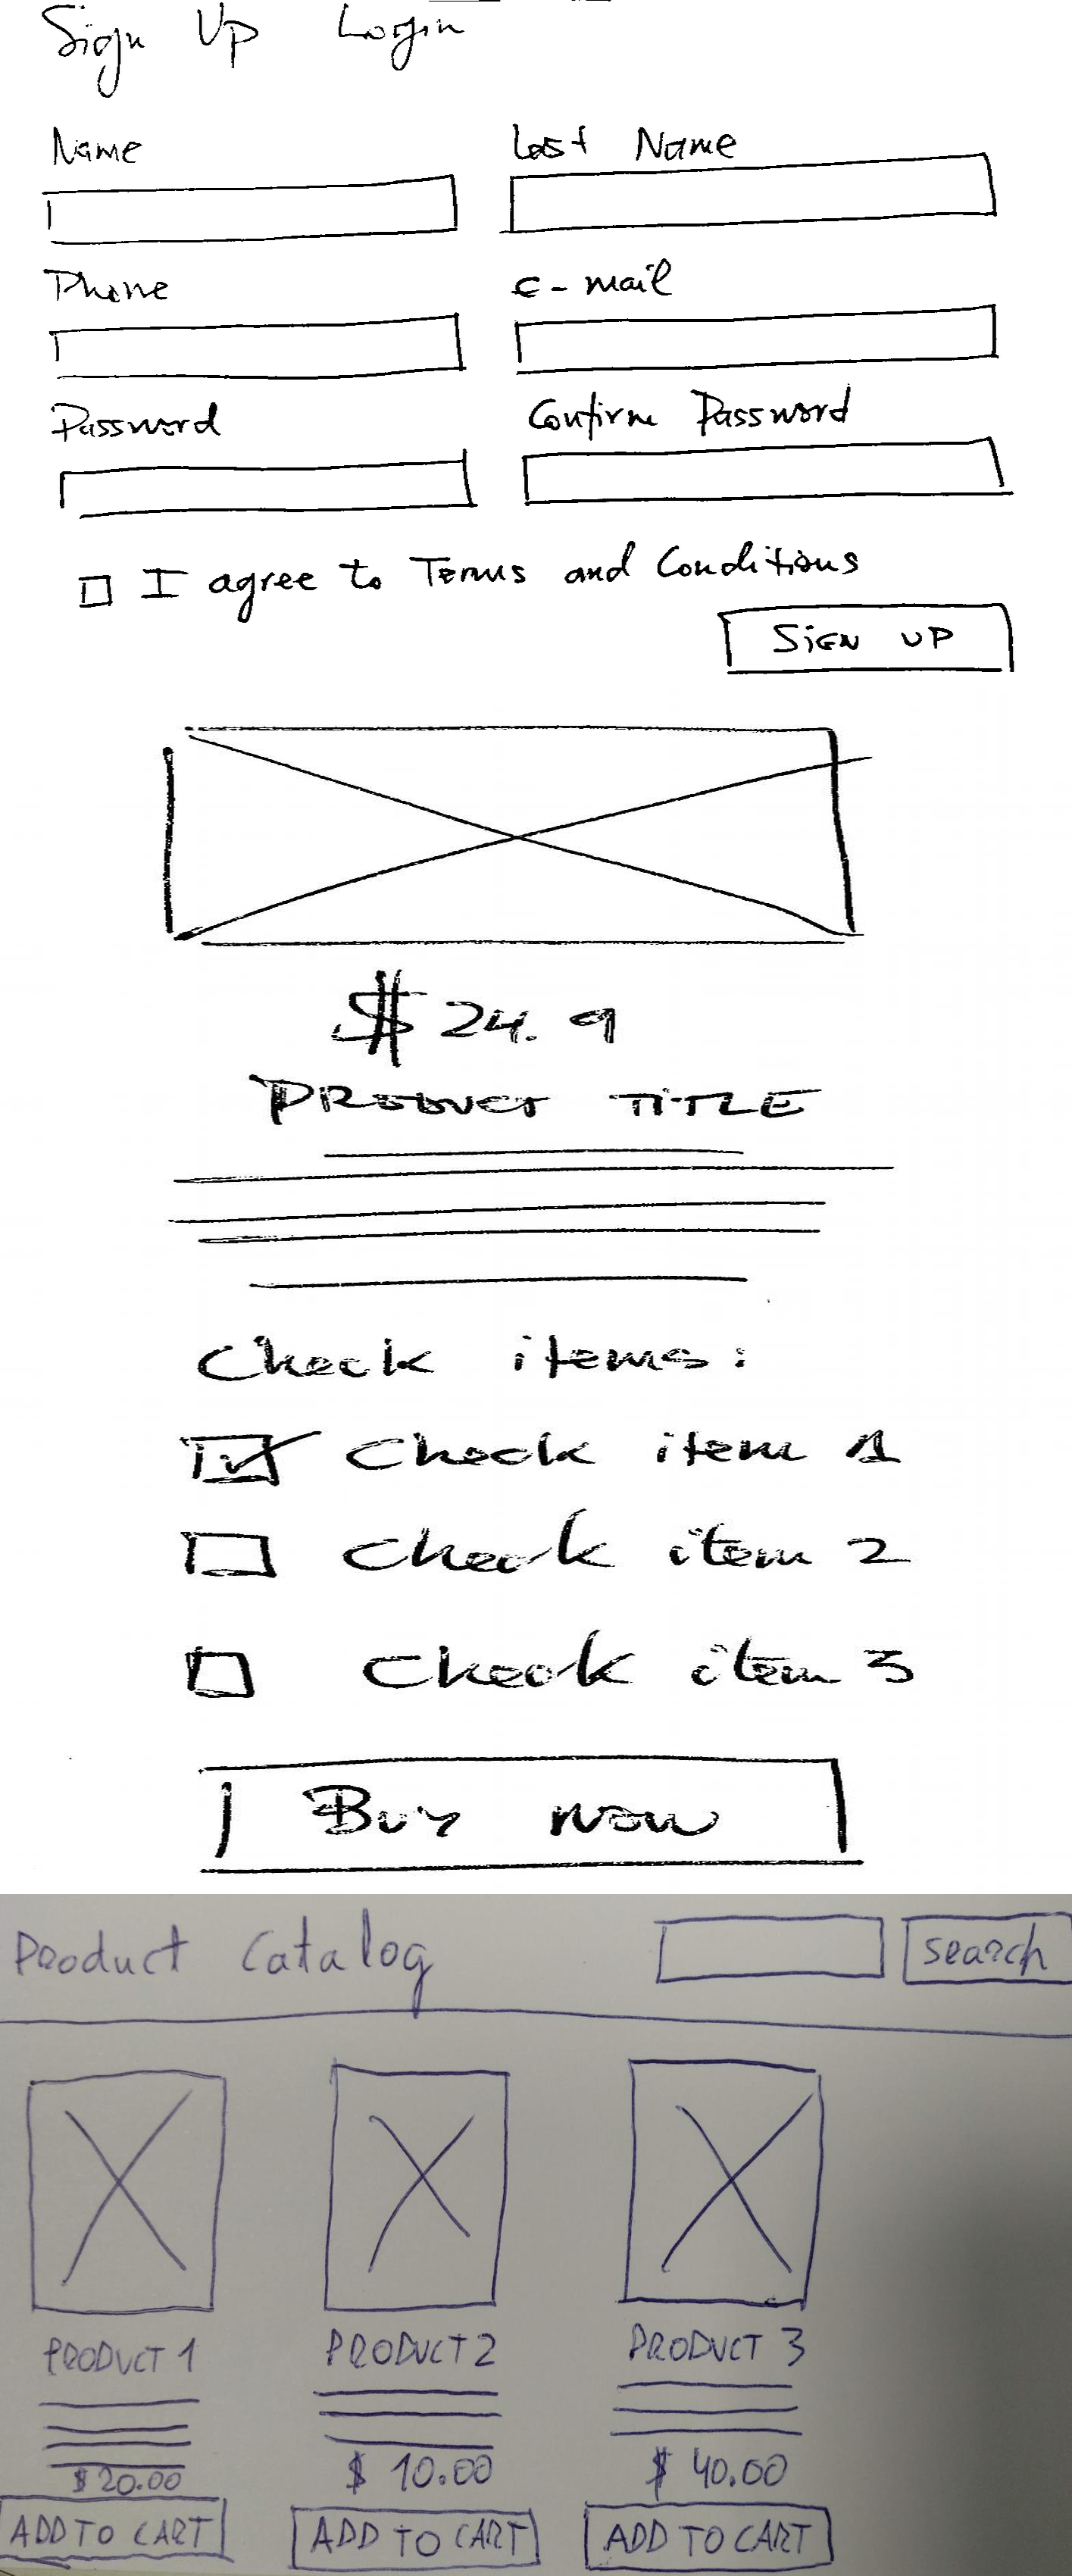 Sign Up Login
Name Last Name
Phone e-mail
Password Confirm Password
I agree to Terms and Conditions
SiGN UP
$ 24.9
PRODUCT TITLE
Check items:
Check item 1
Check item 2
Check item 3
Buy now
Product Catalog search
PRODUCT 1 PRODUCT 2 PRODUCT 3
$ 20.00 $ 10.00 $ 40.00
ADD TO CART ADD TO CART ADD TO CART